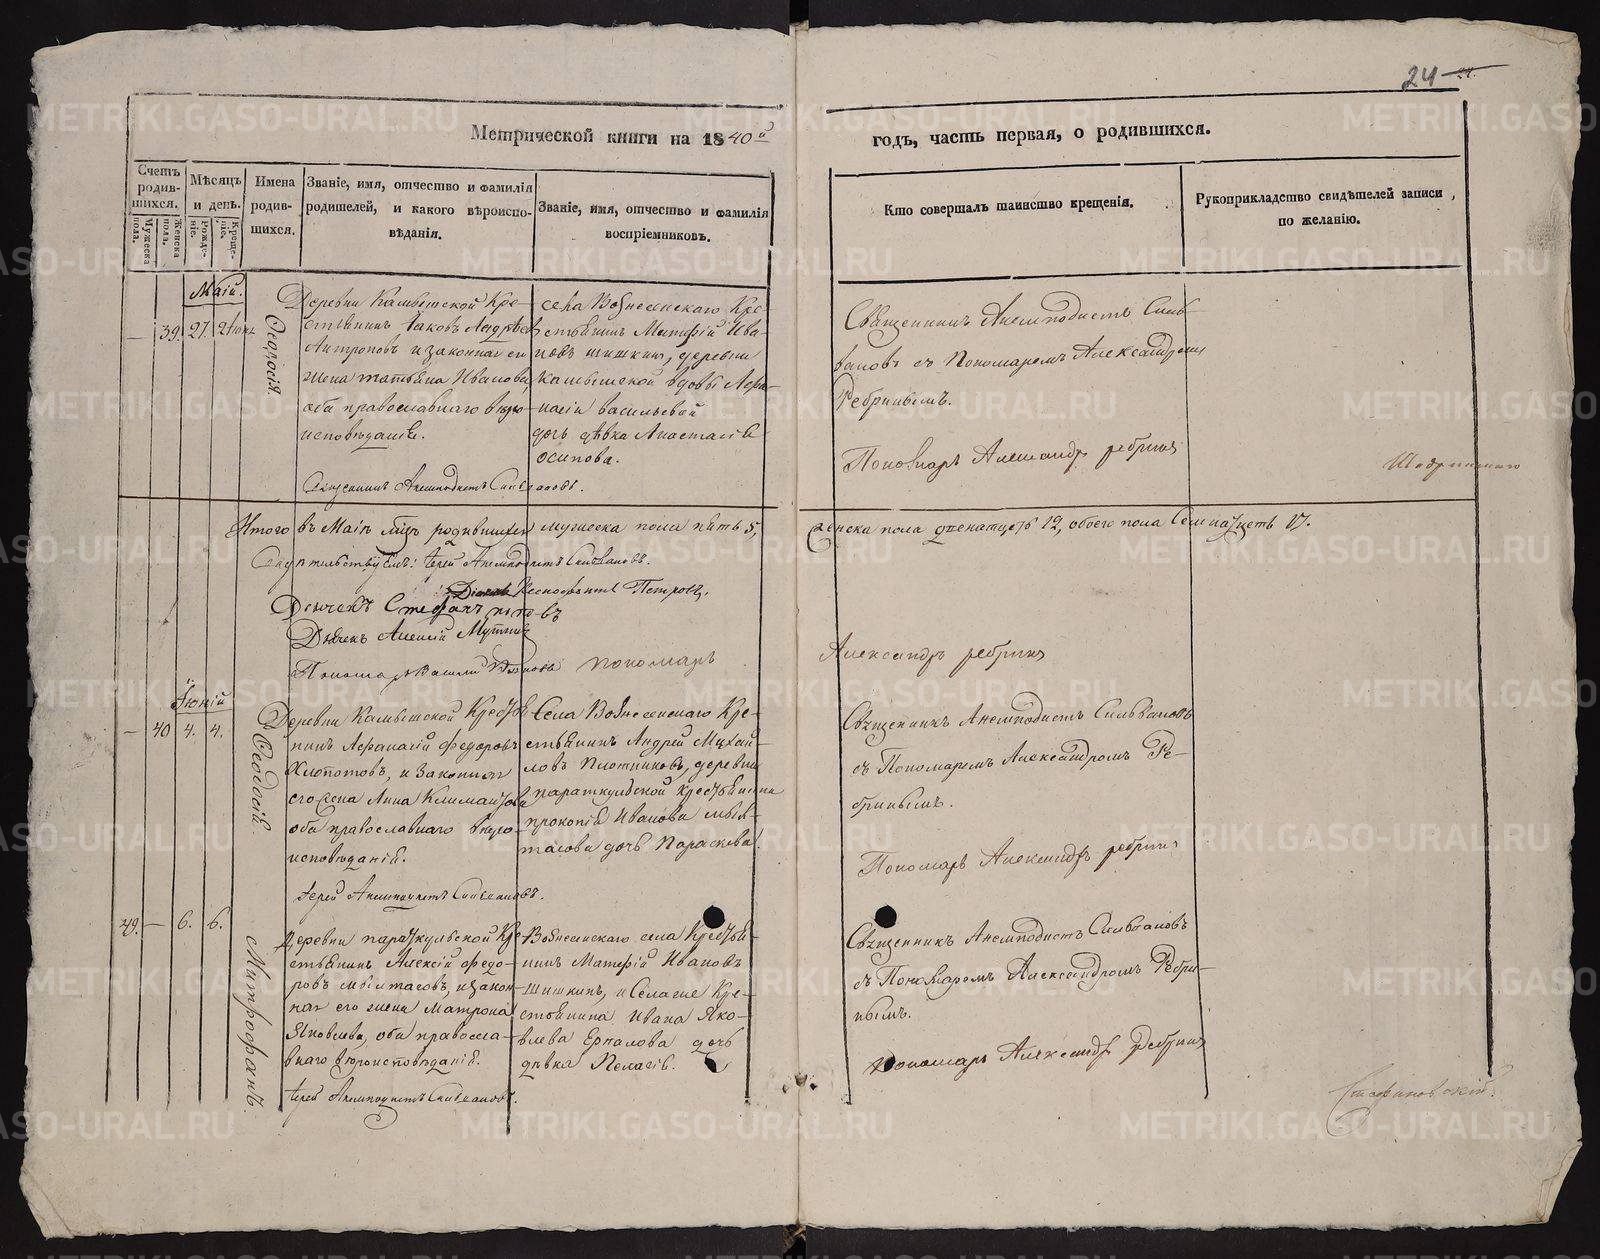 24 24.
Метрической книги на 1840й
годъ, часть первая, о родившихся.
Счетъ родив-шихся.
Мужеска пола.
Женска пола.
Мѣсяцъ и день.
Рожде-ніе.
Креще-ніе.
Имена родив-шихся.
Званіе, имя, отчество и фамилія
родителей, и какого вѣроиспо-
вѣданія.
Званіе, имя, отчество и фамилія
воспріемниковъ.
Кто совершалъ таинство крещенія.
Рукоприкладство свидѣтелей записи
по желанію.
Маій.
— 39. 27. 2 Іюня
Ѳеодосія.
Деревни Камышской Кре-
стьянинъ Іаковъ Андрѣев
Антроповъ и законная ея
жена Татьяна Иванова,
оба православнаго вѣро-
исповѣданія.
Священникъ Анемподистъ Сильвановъ.
села Вознесенскаго Кре-
стьянинъ Матфій Ива-
новъ шишкин, деревни
Камышской вдовы Афа-
насіи васильевой
дочь дѣвка Анастасія
осипова.
Священникъ Анемподистъ Силь-
вановъ съ Пономаремъ Александромъ
Ребринымъ.
Пономарь Александръ ребринъ
Итого въ Маіѣ м҃цѣ родившихся мужеска пола пять 5,
женска пола двенатцеть 12, обоего пола Семнатцеть 17.
Свидѣтельствуемъ: Іерей Анемподистъ Сильвановъ.
Діаконъ Ксенофонтъ Петровъ.
Дьячекъ Стефанъ поповъ
Дьячекъ Алексій Мутинъ
Пономарь Василій пономарь
Александръ ребринъ
Іюній
— 40 4. 4.
Ѳеодосій.
Деревни Камышской Крестья-
нинъ Афанасій федоровъ
Хлопотовъ, и Законная
его жена Анна Климантова
оба православнаго вѣро-
исповѣданія.
Іерей Анемподистъ Сильвановъ.
Села Вознесенскаго Кре-
стьянинъ Андрей Михай-
ловъ Плотниковъ, деревни
параткульской крестьянина
прокопія Иванова мыл-
тасова дочь Параскева.
Священникъ Анемподистъ Сильвановъ
съ Пономаремъ Александромъ Ре-
бринымъ.
Пономарь Александръ ребринъ
49. — 6. 6.
Митрофанъ.
Деревни параткульской Кре-
стьянинъ Алексій федо-
ровъ мылтасовъ, и закон-
ная его жена Матрона
Яковлева, оба правосла-
внаго вѣроисповѣданія.
Іерей Анемподистъ Сильвановъ.
Вознесенскаго села Крестья-
нинъ Матфій Ивановъ
Шишкинъ, и Селаже Кре-
стьянина Ивана Яко-
влева Ерпалова дочь
дѣвка Пелагія.
Священникъ Анемподистъ Сильвановъ
съ Пономаремъ Александромъ Ребри-
нымъ.
Пономарь Александръ Ребринъ
METRIKI.GASO-URAL.RU